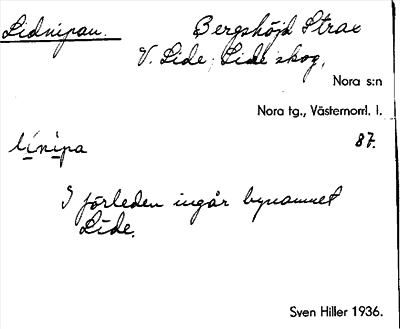 Lidnipan. Bergshöjd Strax
V. Lide; Lide skog,
Nora s:n
Nora tg., Västernorrl. l.
línipa 87.
I förleden ingår bynamnet
Lide.
Sven Hiller 1936.